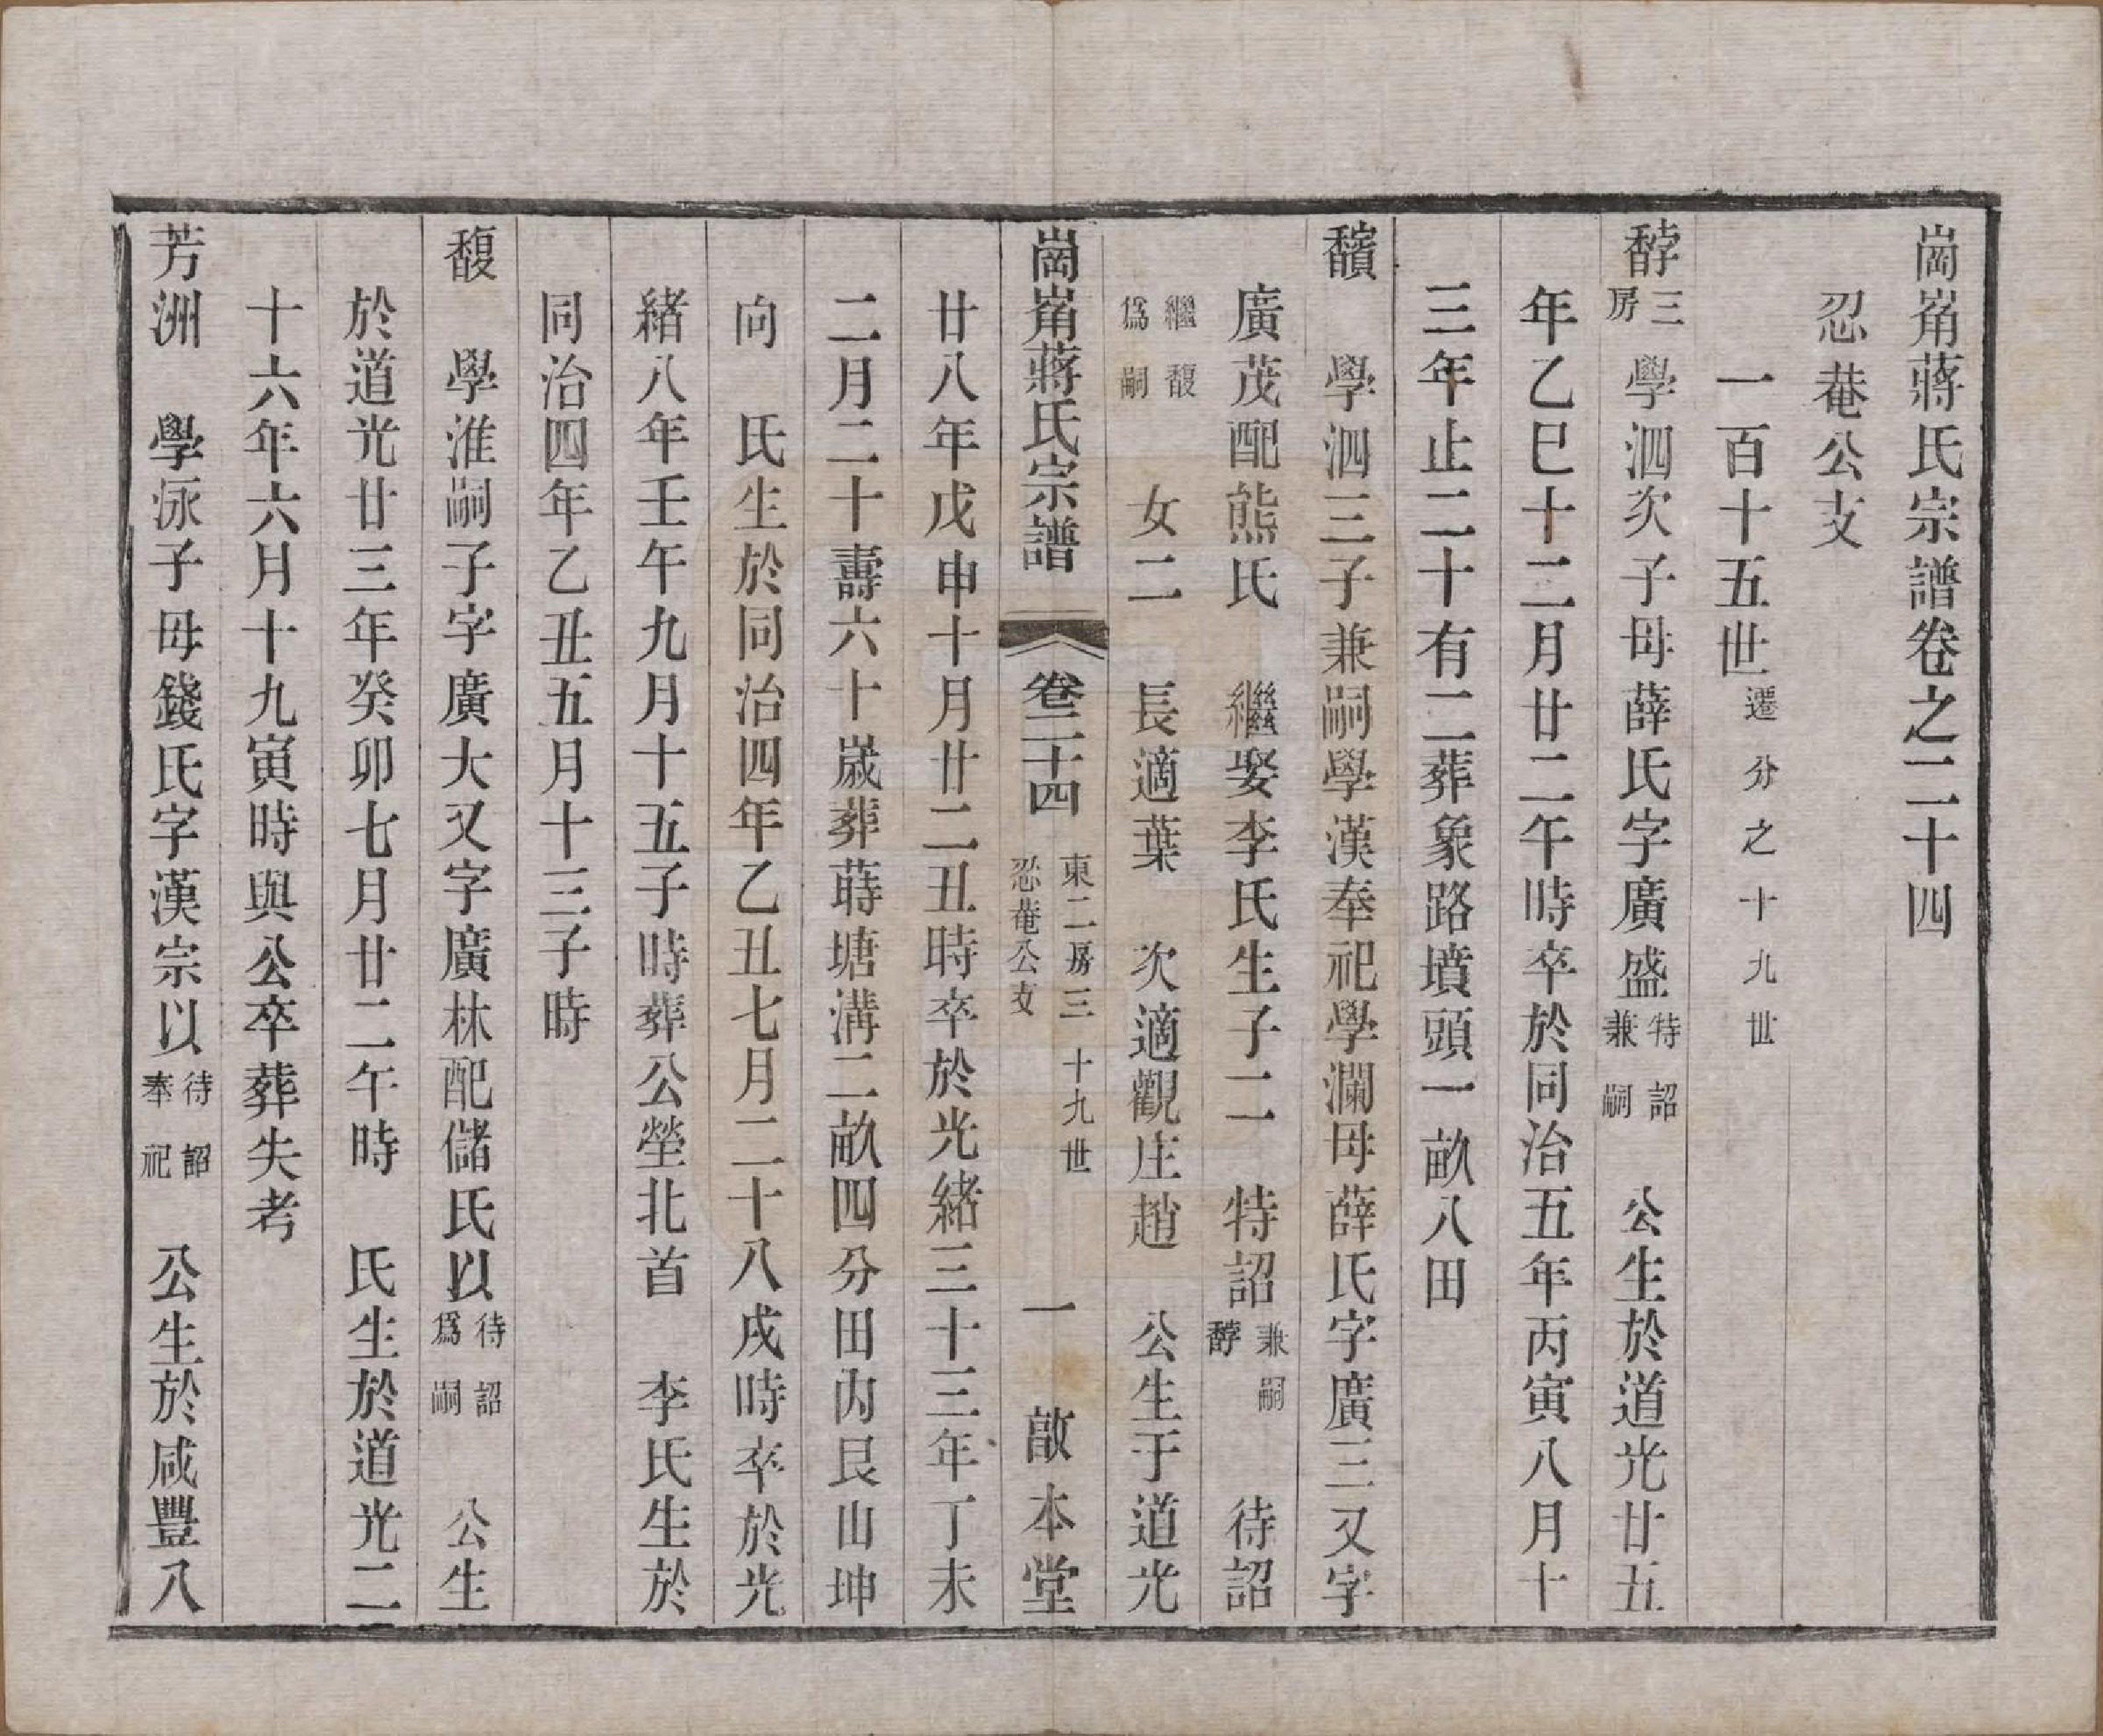 崗嵛蔣氏宗譜卷之二十四
忍菴公支
一百十五世遷分之十九世
馞三房學泗次子母薛氏字廣盛特詔兼嗣公生於道光廿五
年乙巳十二月廿二午時卒於同治五年丙寅八月十
三年止二十有二葬象路墳頭一畝八田
學泗三子兼嗣學漢奉祀學瀾母薛氏字廣三又字
廣茂配熊氏繼娶李氏生子二特詔兼嗣馞待詔
繼馥爲嗣女二長適葉次適觀庄趙公生于道光
崗嵛蔣氏宗譜卷二十四東二房三十九世忍菴公支一啟本堂
廿八年戊申十月廿二丑時卒於光緒三十三年丁未
二月二十壽六十歲葬蒔塘溝二畝四分田內艮山坤
向氏生於同治四年乙丑七月二十八戌時卒於光
緒八年壬午九月十五子時葬公塋北首李氏生於
同治四年乙丑五月十三子時
馥學淮嗣子字廣大又字廣林配儲氏以待詔爲嗣公生
於道光廿三年癸卯七月廿二午時氏生於道光二
十六年六月十九寅時與公卒葬失考
芳洲學泳子母錢氏字漢宗以待詔奉祀公生於咸豐八